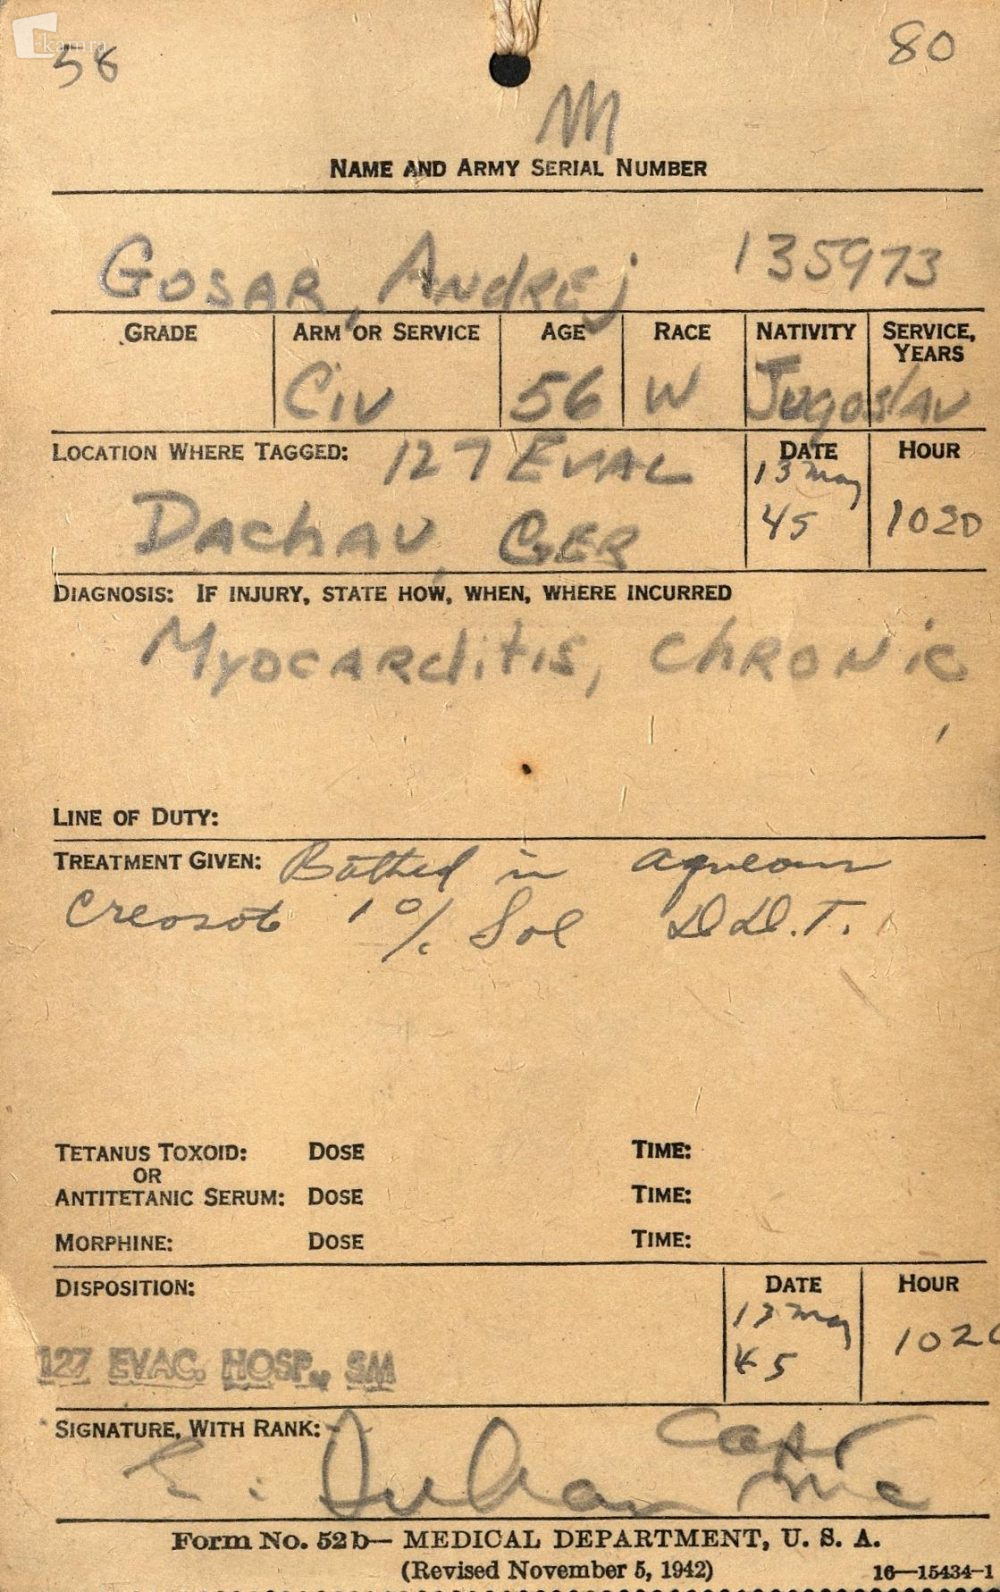 58
80
M
NAME AND ARMY SERIAL NUMBER
GOSAR, ANDREj 135973
GRADE ARM OR SERVICE AGE RACE NATIVITY SERVICE, YEARS
Civ 56 W Jugoslav
LOCATION WHERE TAGGED: 127 EVAC DATE HOUR
13 May
DAChAU, GER 45 1020
DIAGNOSIS: IF INJURY, STATE HOW, WHEN, WHERE INCURRED
MYOCARditis, ChRONic
LINE OF DUTY:
TREATMENT GIVEN: Bathed in aqueous
Creosot 1% Sol D.D.T.
TETANUS TOXOID: DOSE TIME:
OR
ANTITETANIC SERUM: DOSE TIME:
MORPHINE: DOSE TIME:
DISPOSITION: DATE HOUR
13 May
45 1020
127 EVAC. HOSP., SM
SIGNATURE, WITH RANK: Capt
MC
Form No. 52b— MEDICAL DEPARTMENT, U. S. A.
(Revised November 5, 1942) 16—15434-1